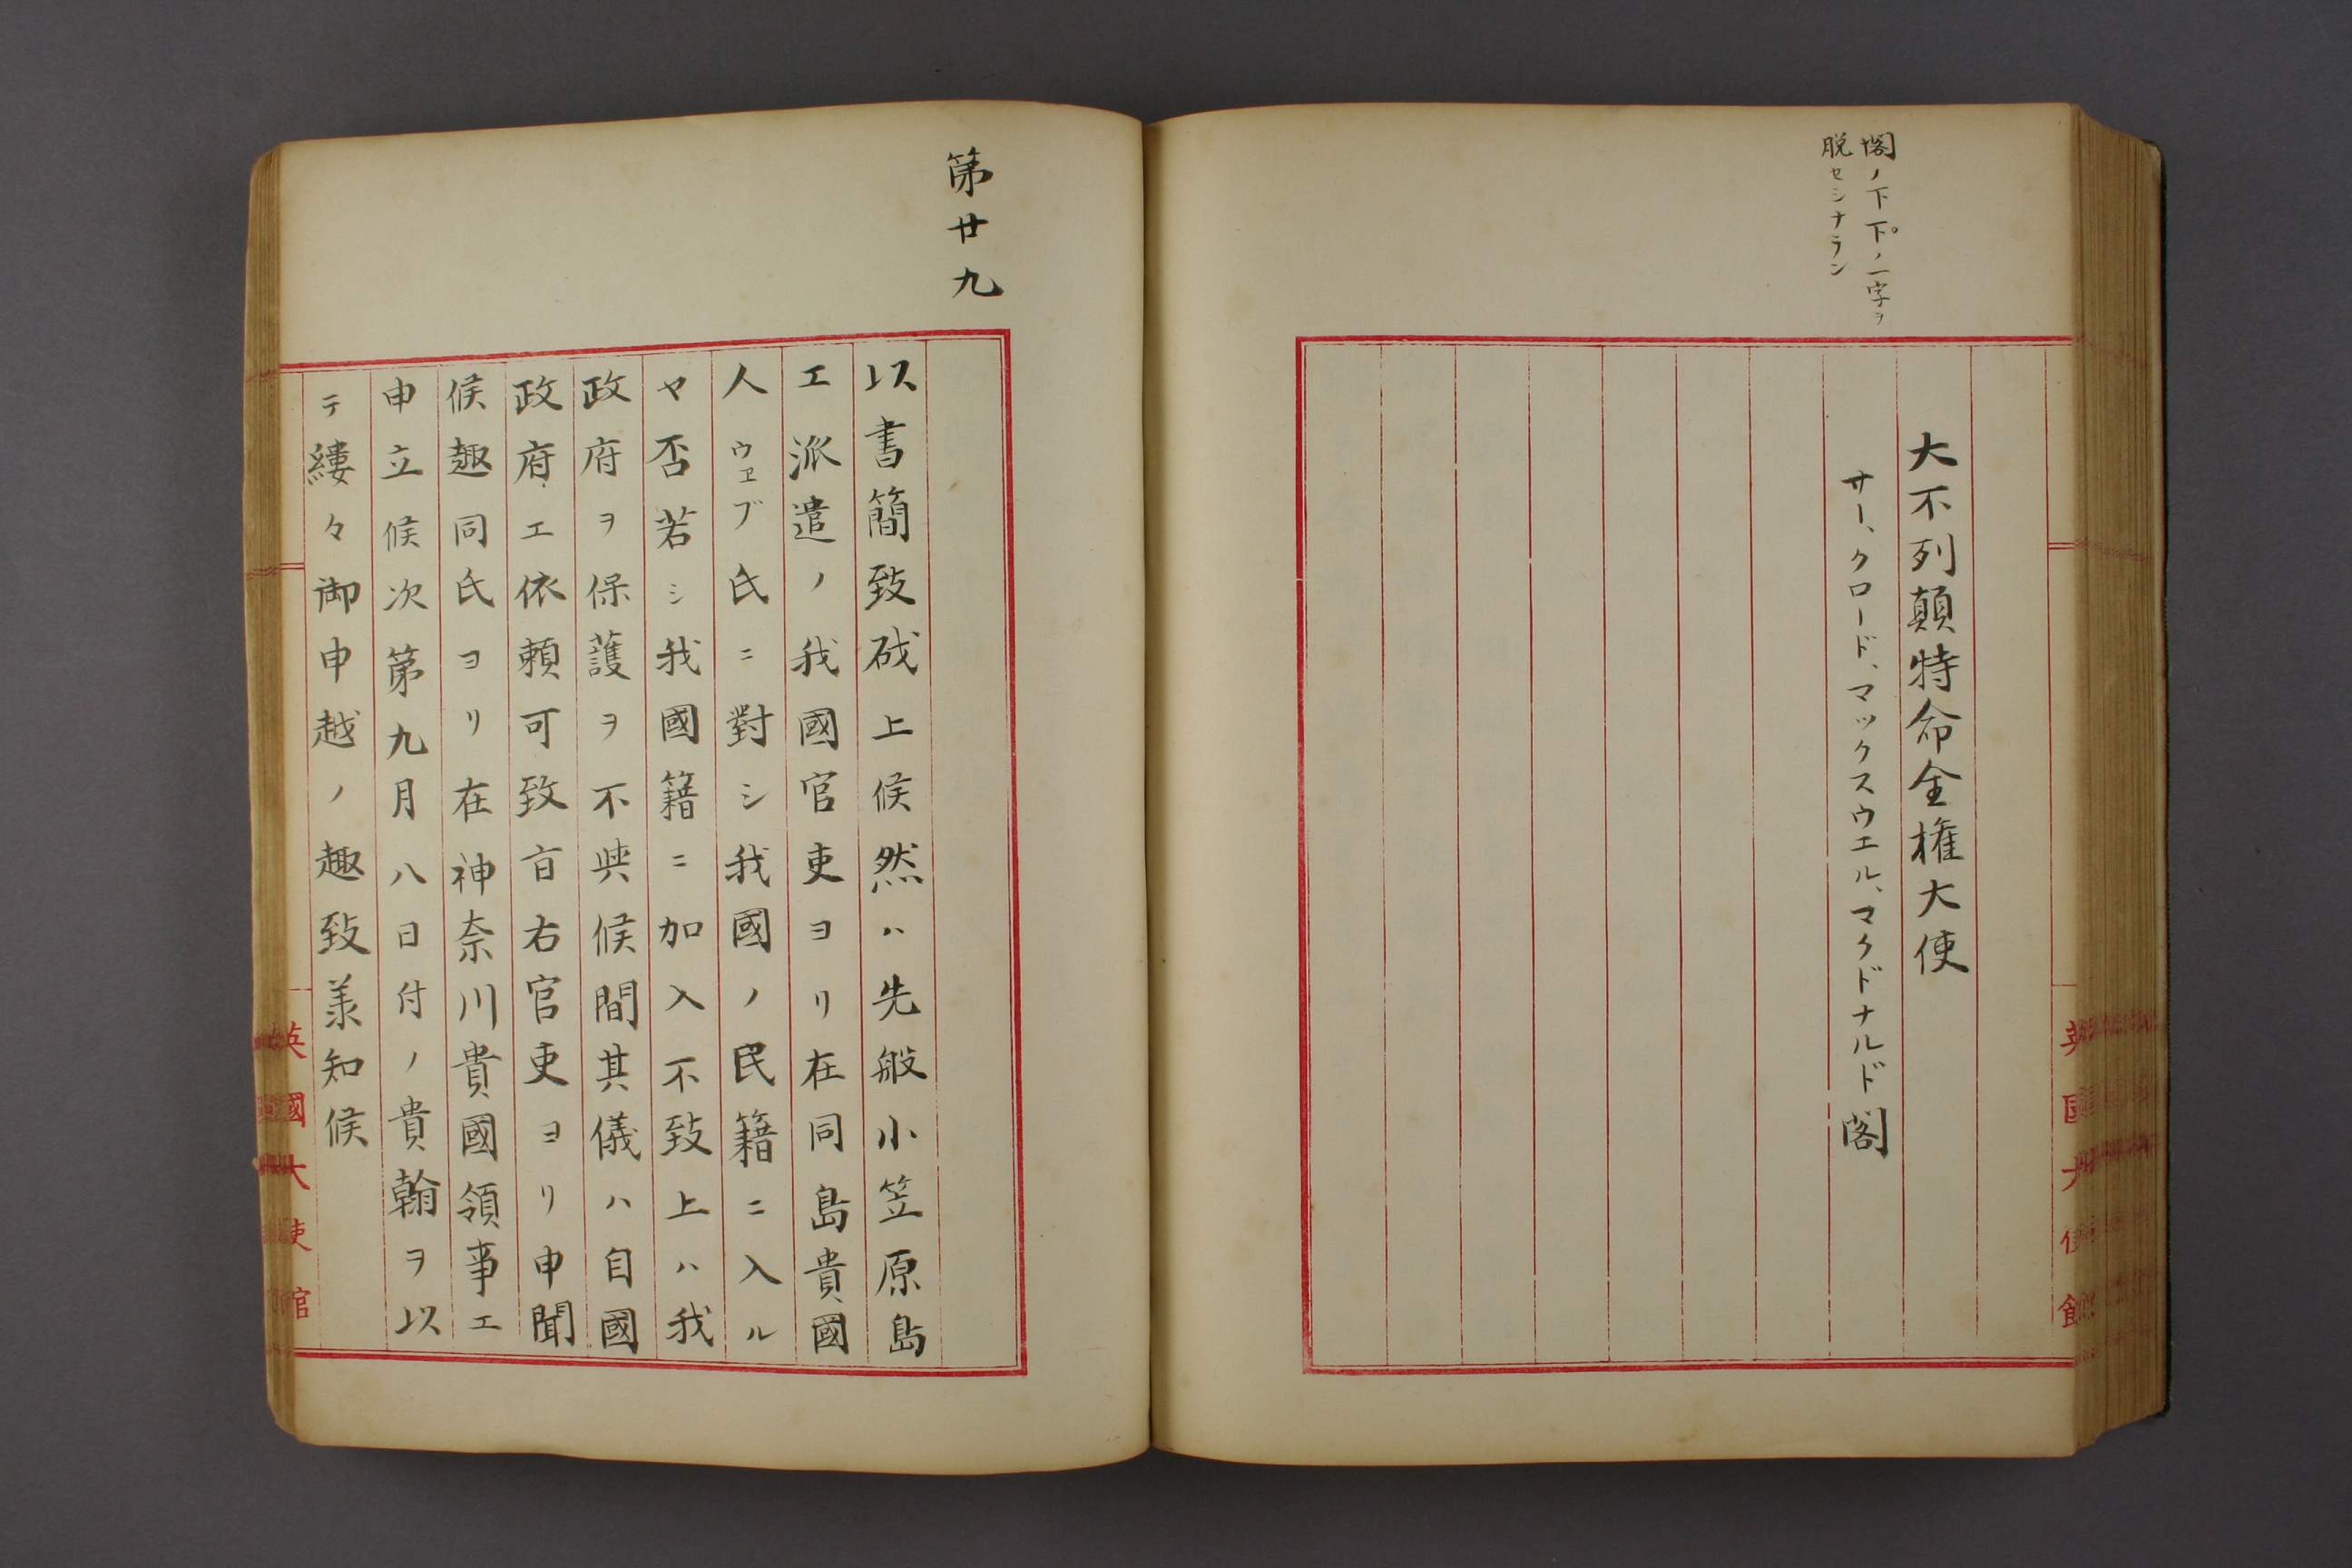 閣ノ下下ノ一字ヲ
脱セシナラン
大不列顛特命全権大使
サー、クロード、マックスウエル、マクドナルド閣
英國大使館
第廿九
以書簡致啓上候然ハ先般小笠原島
エ派遣ノ我國官吏ヨリ在同島貴國
人ウヱブ氏ニ對シ我國ノ民籍ニ入ル
ヤ否若シ我國籍ニ加入不致上ハ我
政府ヲ保護ヲ不與候間其儀ハ自國
政府エ依頼可致旨右官吏ヨリ申聞
候趣同氏ヨリ在神奈川貴國領事エ
申立候次第九月八日付ノ貴翰ヲ以
テ縷々御申越ノ趣致羕知候
英國大使館